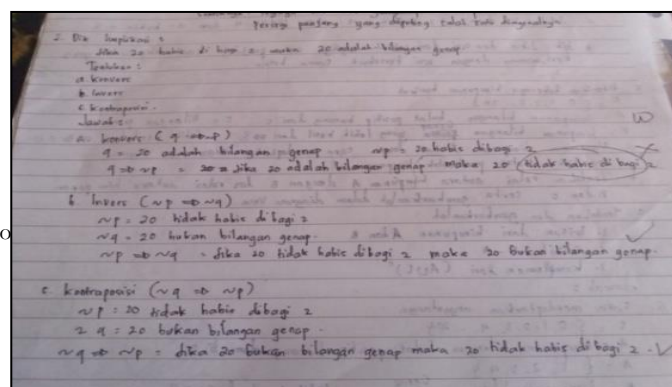 Persegi panjang yang dipotong
2. Dik implikasi :
Jika 20 habis di bagi 2 maka 20 adalah bilangan genap
Tentukan :
a. Konvers
b. Invers
c. kontraposisi.
Jawab :
a. konvers ( q => p )
q = 20 adalah bilangan genap ~p = 20 habis dibagi 2
q => ~p = Jika 20 adalah bilangan genap maka 20 tidak habis di bagi 2
b. Invers (~p => ~q)
~p = 20 tidak habis di bagi 2
~q = 20 bukan bilangan genap.
~p => ~q = Jika 20 tidak habis dibagi 2 maka 20 bukan bilangan genap.
c. kontraposisi (~q => ~p)
~p = 20 tidak habis dibagi 2
2 q = 20 bukan bilangan genap.
~q => ~p = Jika 20 bukan bilangan genap maka 20 tidak habis di bagi 2.